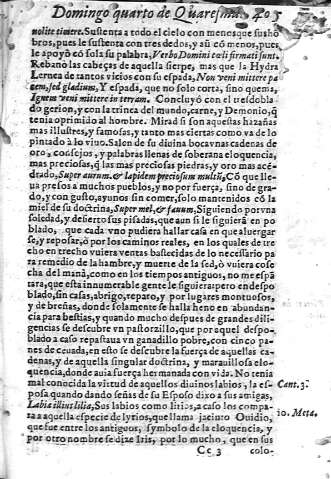 Domingo quarto de Quaresma. 405
nolite timere. Sustenta a todo el cielo con menos que sus hõ
bros, pues le sustenta con tres dedos, y aũ có menos, pues
le apoyó có sola su palabra, Verbo Domini cœli firmati sunt.
Rebanò las cabeças de aquella sierpe, mas que la Hydra
Lernea de tantos vicios con su espada, Non veni mittere pa
cem, sed gladium, Y espada, que no solo corta, sino quema,
Ignem veni mittere in terram. Concluyó con el tresdobla-
do gerion, y con la trinca del mundo, carne, y Demonio, q̃
tenia oprimido al hombre. Mirad si son aquestas hazañas
mas illustres, y famosas, y tanto mas ciertas como va de lo
pintado à lo vivo. Salen de su divina boca vnas cadenas de
oro, consejos, y palabras llenas de soberana eloquencia,
mas preciosas, q̃ las mas preciosas piedras, y oro mas ace
drado, Super aurum & lapidem preciosum multũ, Có que lle-
ua presos a muchos pueblos, y no por fuerça, sino de gra-
do, y con gusto, ayunos sin comer, solo mantenidos có la
miel de su doctrina, Super mel, & fauum, Siguiendo por vna
soledad, y desierto sus pisadas, que aun si le siguierà en po
blado, que cada vno pudiera hallar casa en que aluergar
se, y reposar, ò por los caminos reales, en los quales de tre
cho en trecho vuiera ventas bastecidas de lo necessario pa
ra remedio de la hambre, y muerte de la sed, ò vuiera cose
cha del manà, como en los tiempos antiguos, no me espã
tara, que esta innumerable gente le siguiera; pero en despo
blado, sin casas, abrigo, reparo, y por lugares montuosos,
y de breñas, donde solamente se halla heno en abundan
cia para bestias, y quando mucho despues de grandes dili-
gencias se descubre vn pastorzillo, que por aquel despo-
blado a caso repastaua vn ganadillo pobre, con cinco pa-
nes de ceuada, en esto se descubre la fuerça de aquellas ca-
denas, y de aquella singular doctrina, y marauillosa elo-
quencia, donde auia fuerça hermanada con vida. No tenia
mal conocida la virtud de aquellos diuinos labios, la es-
posa quando dando señas de su Esposo dixo a sus amigas,
Labia illius lilia, Sus labios como lirios, a caso los compa-
ra a aquella especie de lyrios, que llama jacinto Ouidio,
que fue entre los antiguos, symbolo de la eloquencia, y
por otro nombre se dize Iris, por lo mucho, que en sus
Cant. 3.
10. Meta.
Cc 3 colo-